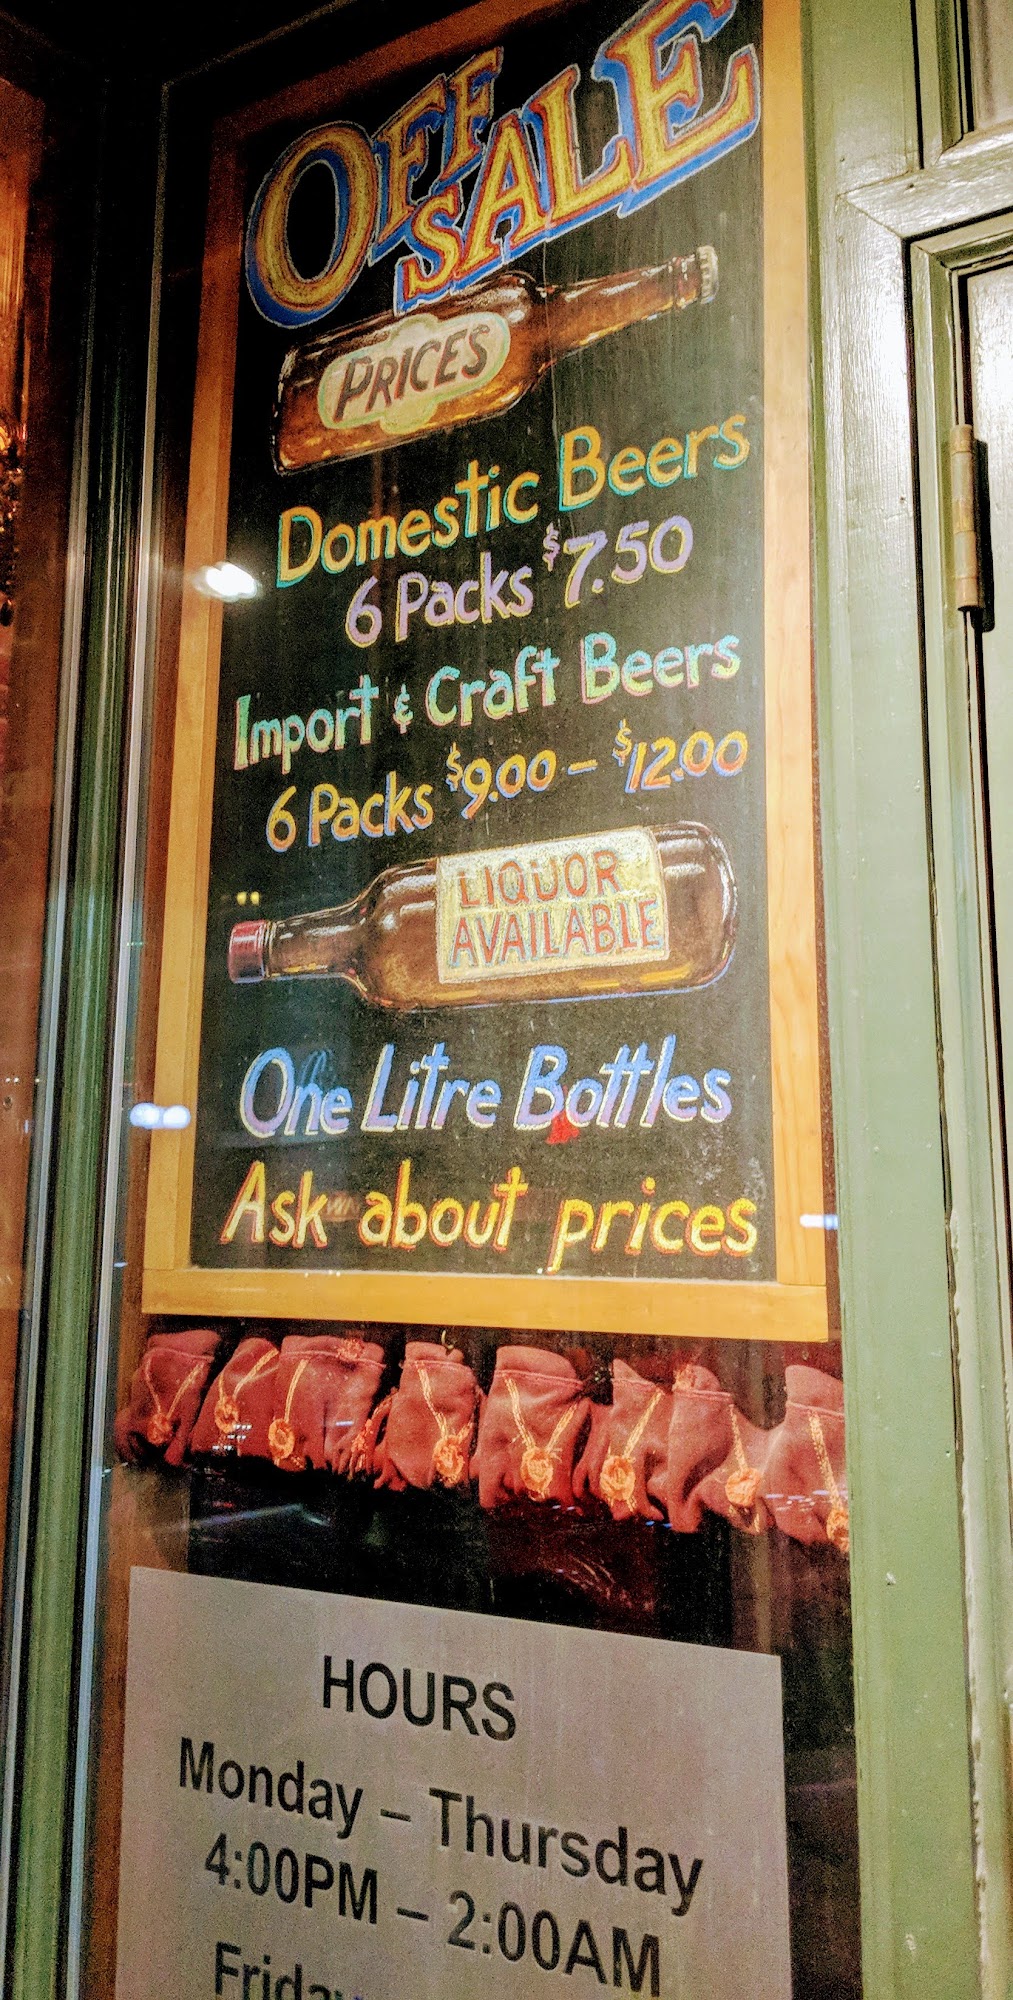 OFF
SALE
PRICES
Domestic Beers
6 Packs $7.50
Import & Craft Beers
6 Packs $9.00 – $12.00
LIQUOR
AVAILABLE
One Litre Bottles
Ask about prices
HOURS
Monday – Thursday
4:00PM – 2:00AM
Friday